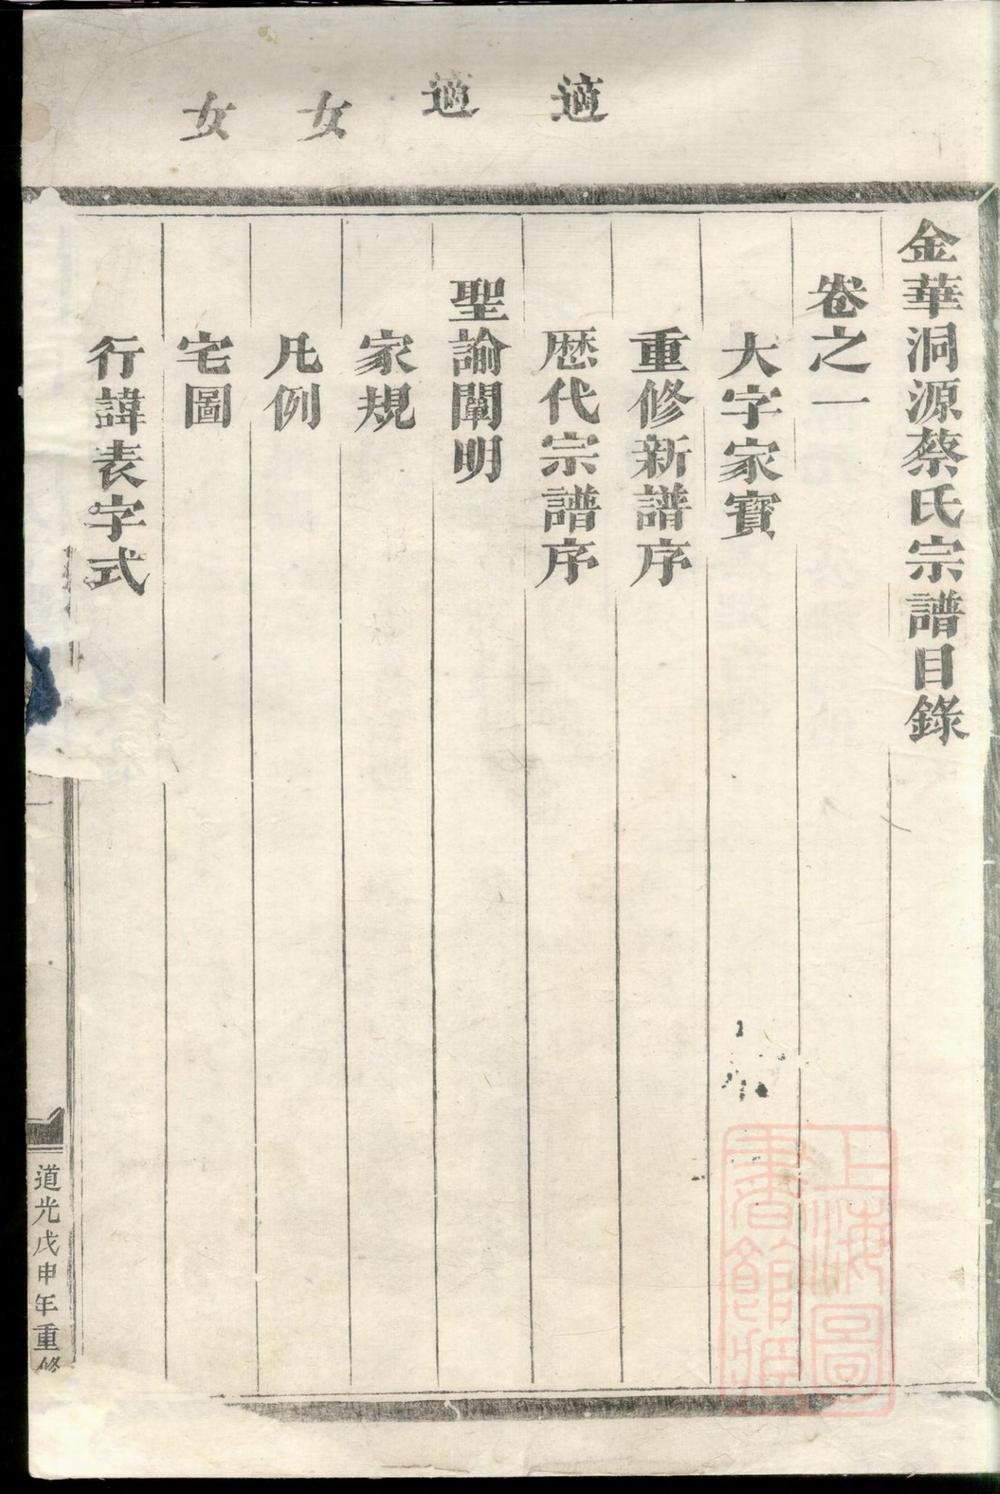 適
適
女
女
金華洞源蔡氏宗譜目錄
卷之一
大字家寶
重修新譜序
歴代宗譜序
聖諭闡明
家規
凡例
宅圖
行諱表字式
道光戊申年重修
上海圖
書館藏